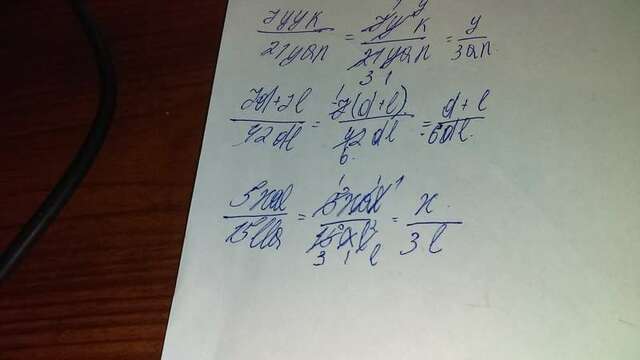 7yyк/21yan = 7y²к/21yan = y/3an
7d+7l/42dl = 7(d+l)/42dl = d+l/6dl
5xal/15lla = 5xal/15al² = x/3l